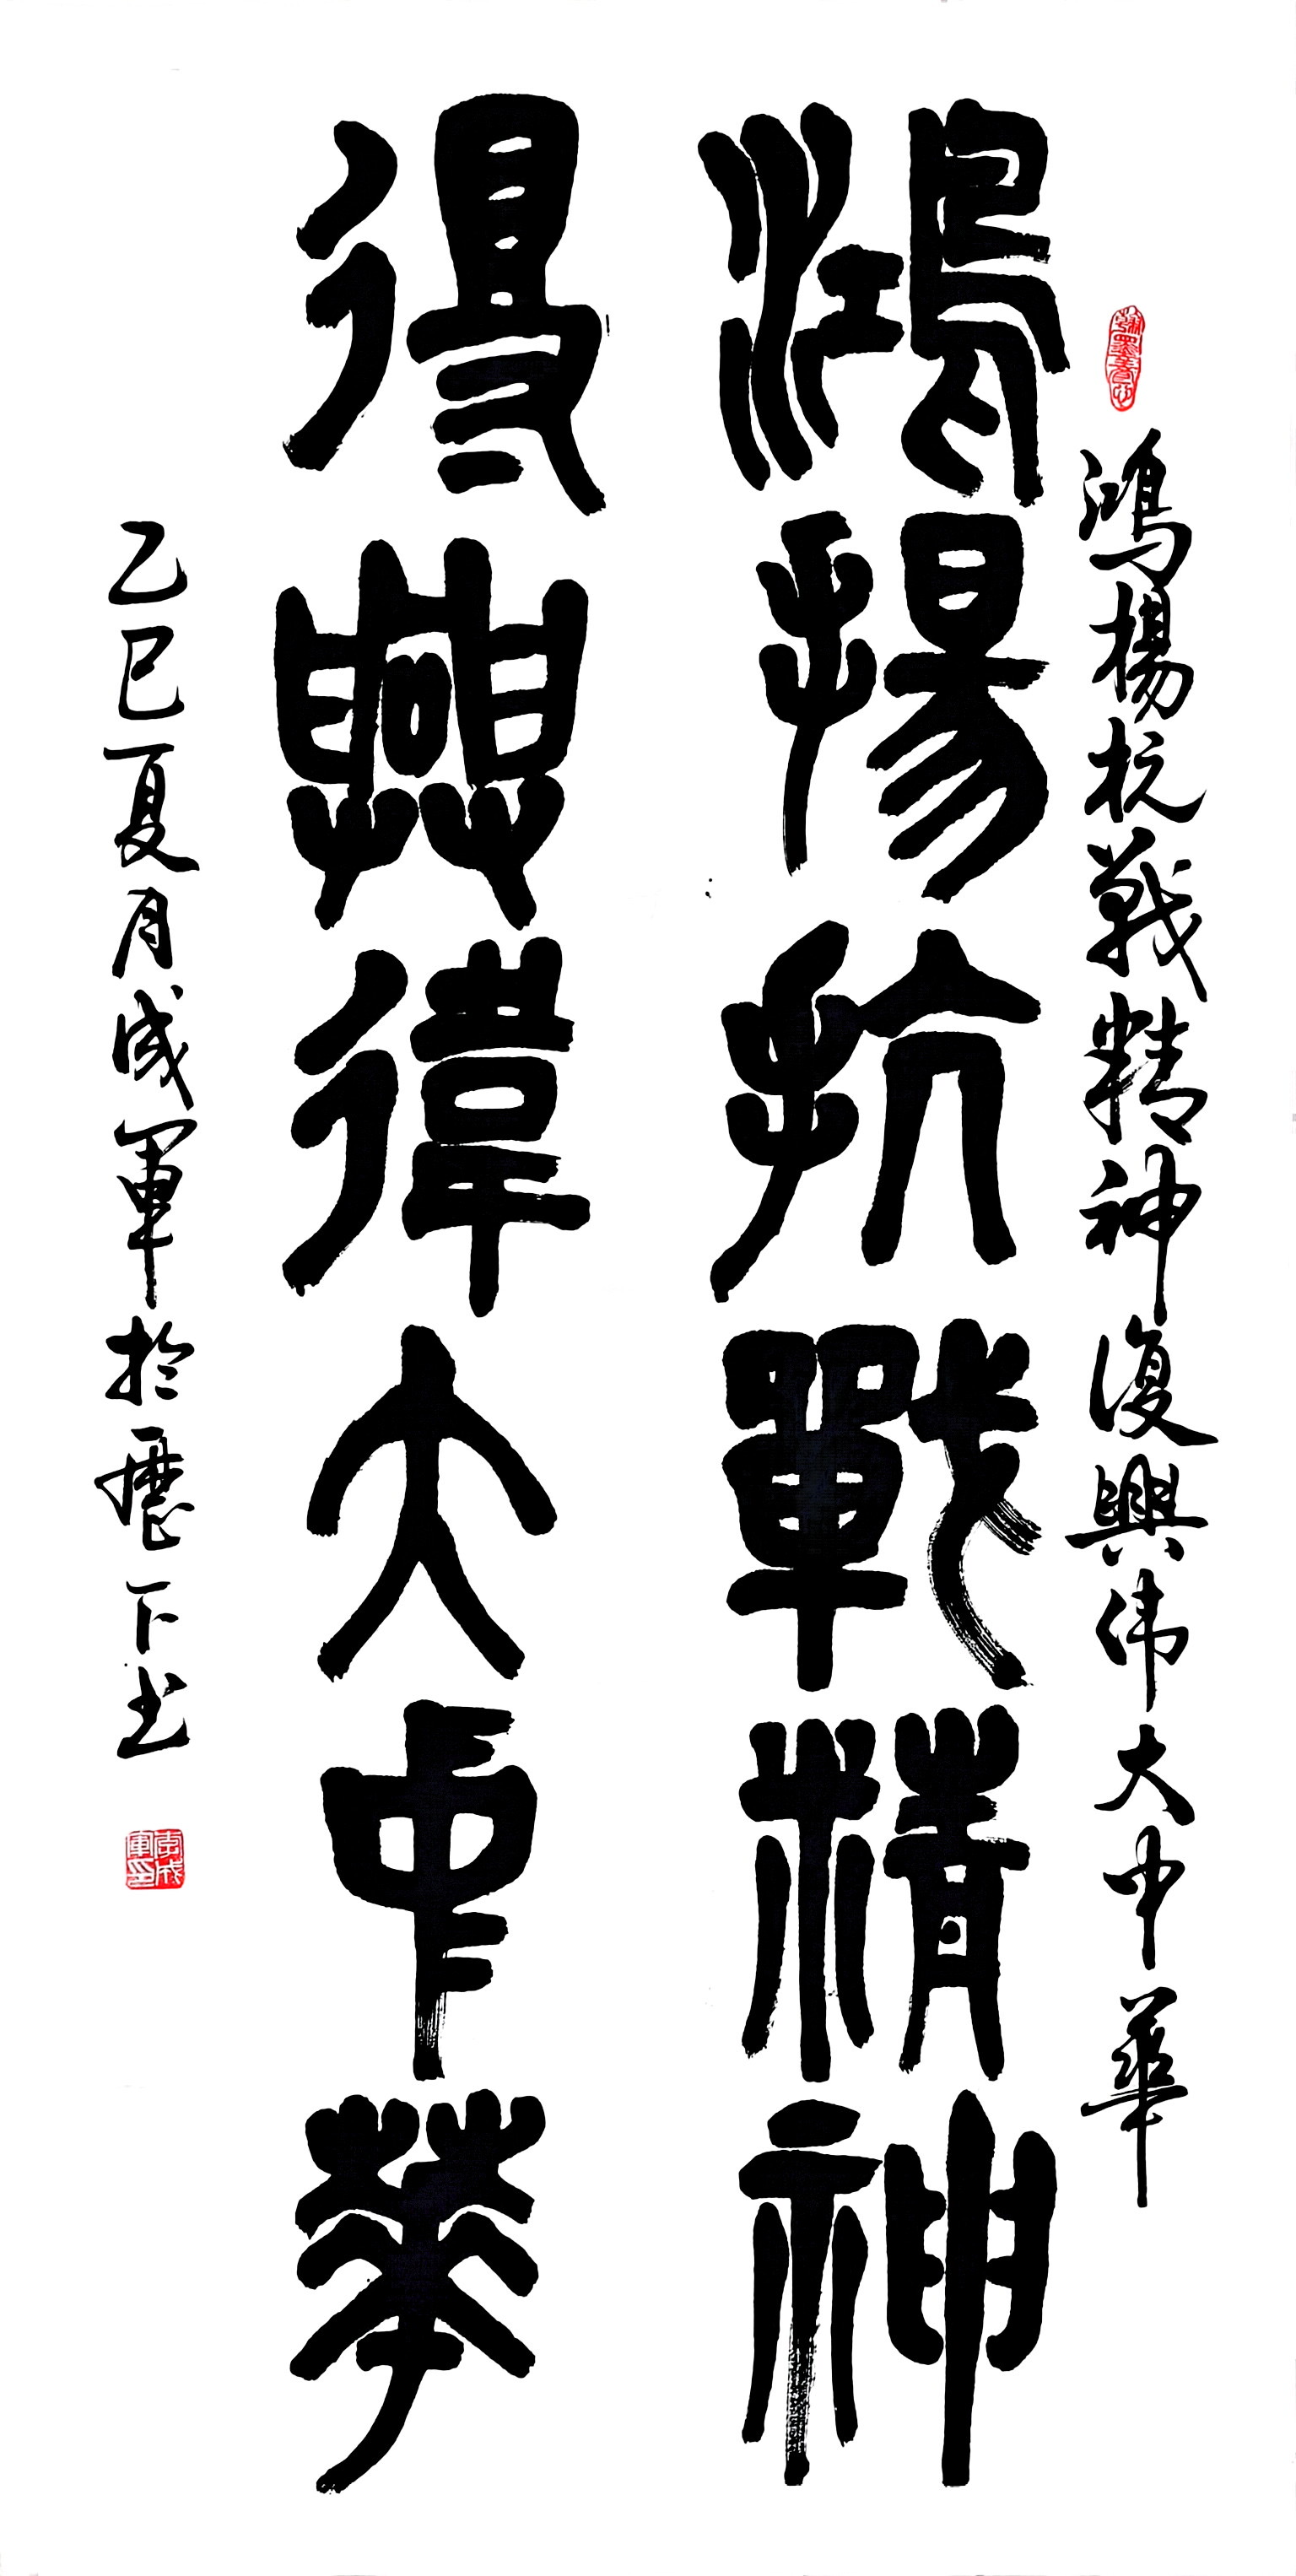 鴻揚抗戰精神復興伟大中華
鴻揚抗戰精神
復興偉大中華
乙巳夏月成軍於歷下书